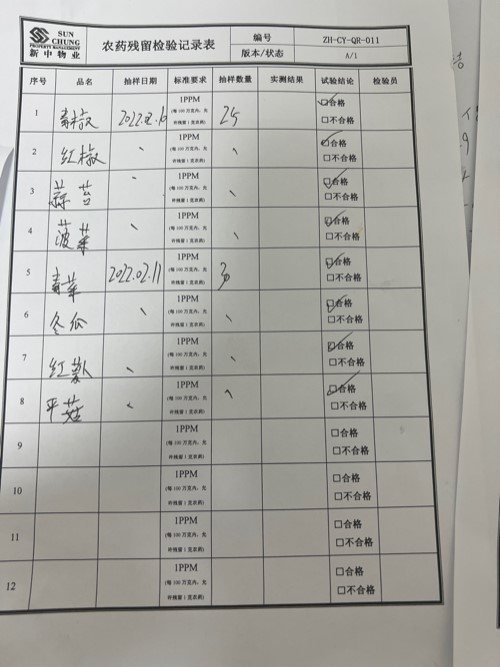 SUN CHUNG
PROPERTY MANAGEMENT
新中物业
农药残留检验记录表
编号 ZH-CY-QR-011
版本/状态 A/1
序号 品名 抽样日期 标准要求 抽样数量 实测结果 试验结论 检验员
1 青椒 1PPM (每 100 万克内,允许残留 1 克农药) 25 ☑合格 □不合格
2 红椒 、 1PPM (每 100 万克内,允许残留 1 克农药) 、 ☑合格 □不合格
3 蒜苔 、 1PPM (每 100 万克内,允许残留 1 克农药) 、 ☑合格 □不合格
4 菠菜 、 1PPM (每 100 万克内,允许残留 1 克农药) 、 ☑合格 □不合格
5 青菜 2022.02.11 1PPM (每 100 万克内,允许残留 1 克农药) 30 ☑合格 □不合格
6 冬瓜 、 1PPM (每 100 万克内,允许残留 1 克农药) 、 ☑合格 □不合格
7 、 1PPM (每 100 万克内,允许残留 1 克农药) 、 ☑合格 □不合格
8 平菇 、 1PPM (每 100 万克内,允许残留 1 克农药) 、 ☑合格 □不合格
9 1PPM (每 100 万克内,允许残留 1 克农药) □合格 □不合格
10 1PPM (每 100 万克内,允许残留 1 克农药) □合格 □不合格
11 1PPM (每 100 万克内,允许残留 1 克农药) □合格 □不合格
12 1PPM (每 100 万克内,允许残留 1 克农药) □合格 □不合格